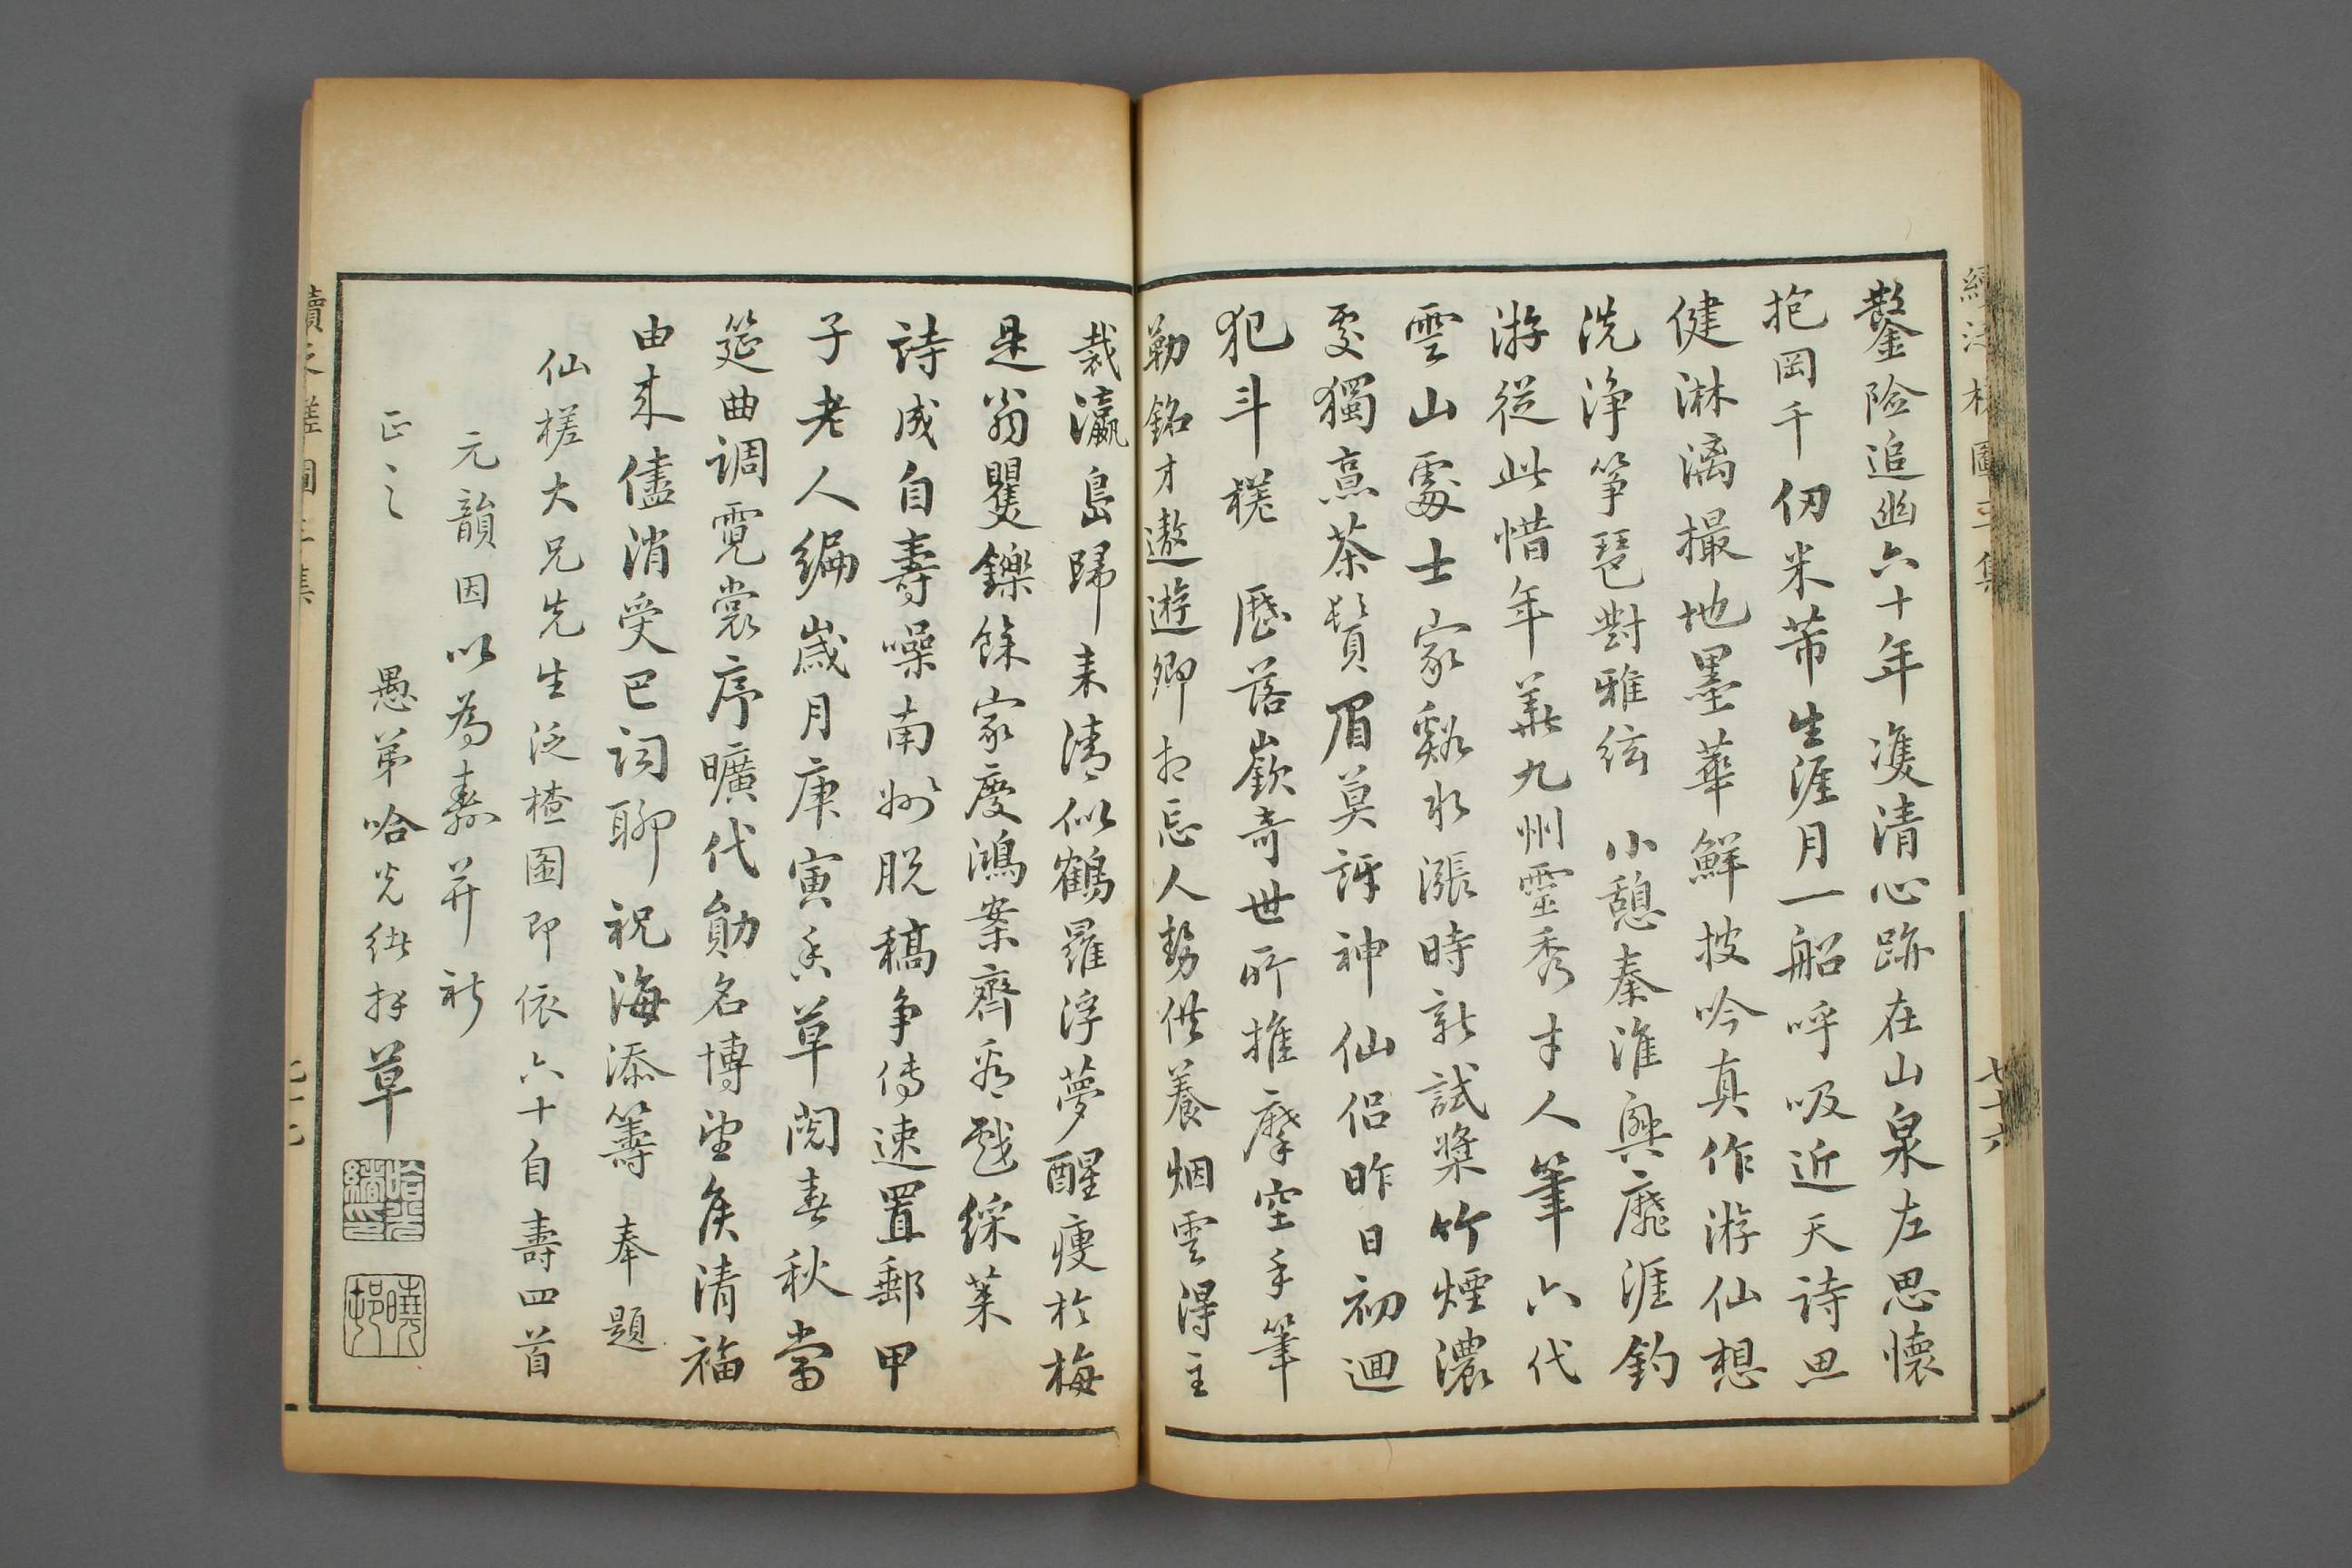 鑿險追幽六十年雙清心跡在山泉左思懷
抱岡千仞米芾生涯月一船呼吸近天詩思
健淋漓撮地墨華鮮披吟真作游仙想
洗淨箏琶對雅弦 小憩秦淮興靡涯釣
游從此惜年華九州靈秀才人筆六代
雲山處士家谿水漲時新試槳竹煙濃
處獨烹茶鬚眉莫訝神仙侶昨日初迴
犯斗槎 歷落嶔奇世所推摩空手筆
勒銘才遨遊卿相忘人勢供養烟雲得主
裁瀛島歸來清似鶴羅浮夢醒瘦於梅
是翁矍鑠餘家慶鴻案齊 戲綵萊
詩成自壽噪南州脫稿爭傳速置郵甲
子老人編歲月庚寅 草閱春秋當
筵曲調霓裳序曠代勛名博望侯清福
由來儘消受巴詞聊祝海添籌 奉題
仙槎大兄先生泛槎圖即依六十自壽四首
元韻因以為壽并祈
正之
愚弟哈光 拜草
續泛槎圖三集
七十六
續泛槎圖三集